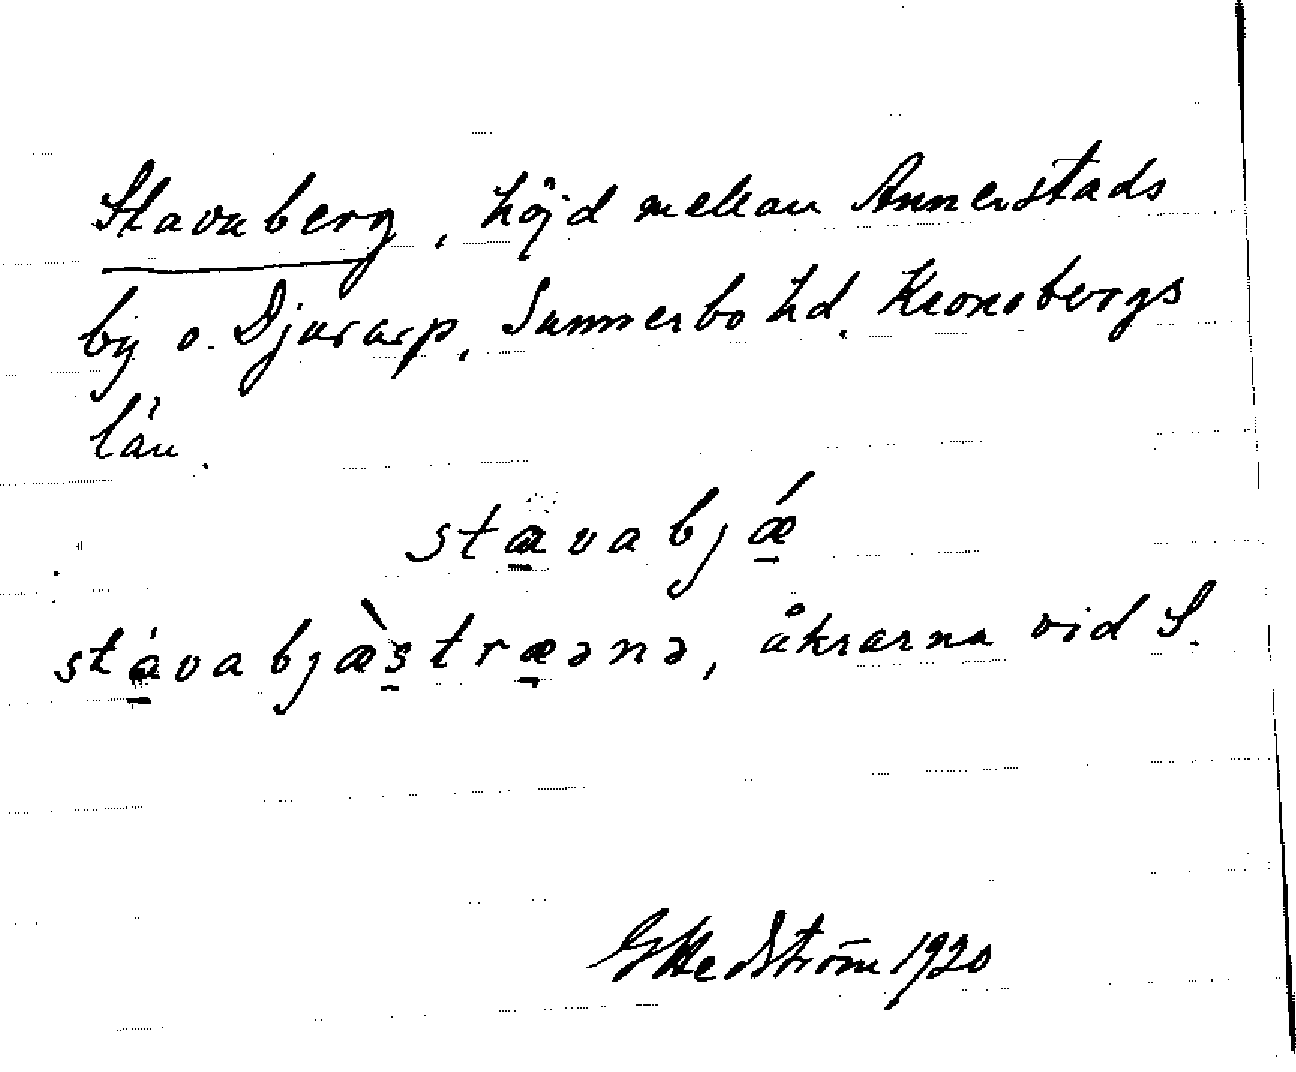 Stavaberg, höjd mellan Annerstads
by o. Djurarp, Sunnerbo hd. Kronobergs
län.
stavabjǽ
stávabjæ̀stræənə, åkrarna vid S.
G Hedström 1920